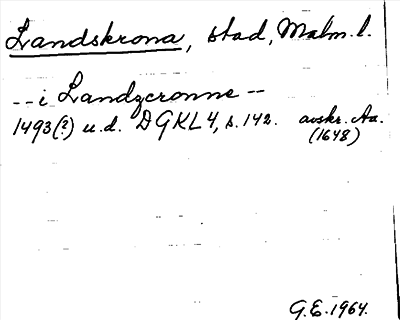 Landskrona, stad, Malm. l.
-- i Landzcronne --
1493(?) u.d. DGKL 4, s. 142. avskr. Aa.
(1648)
G.E. 1964.